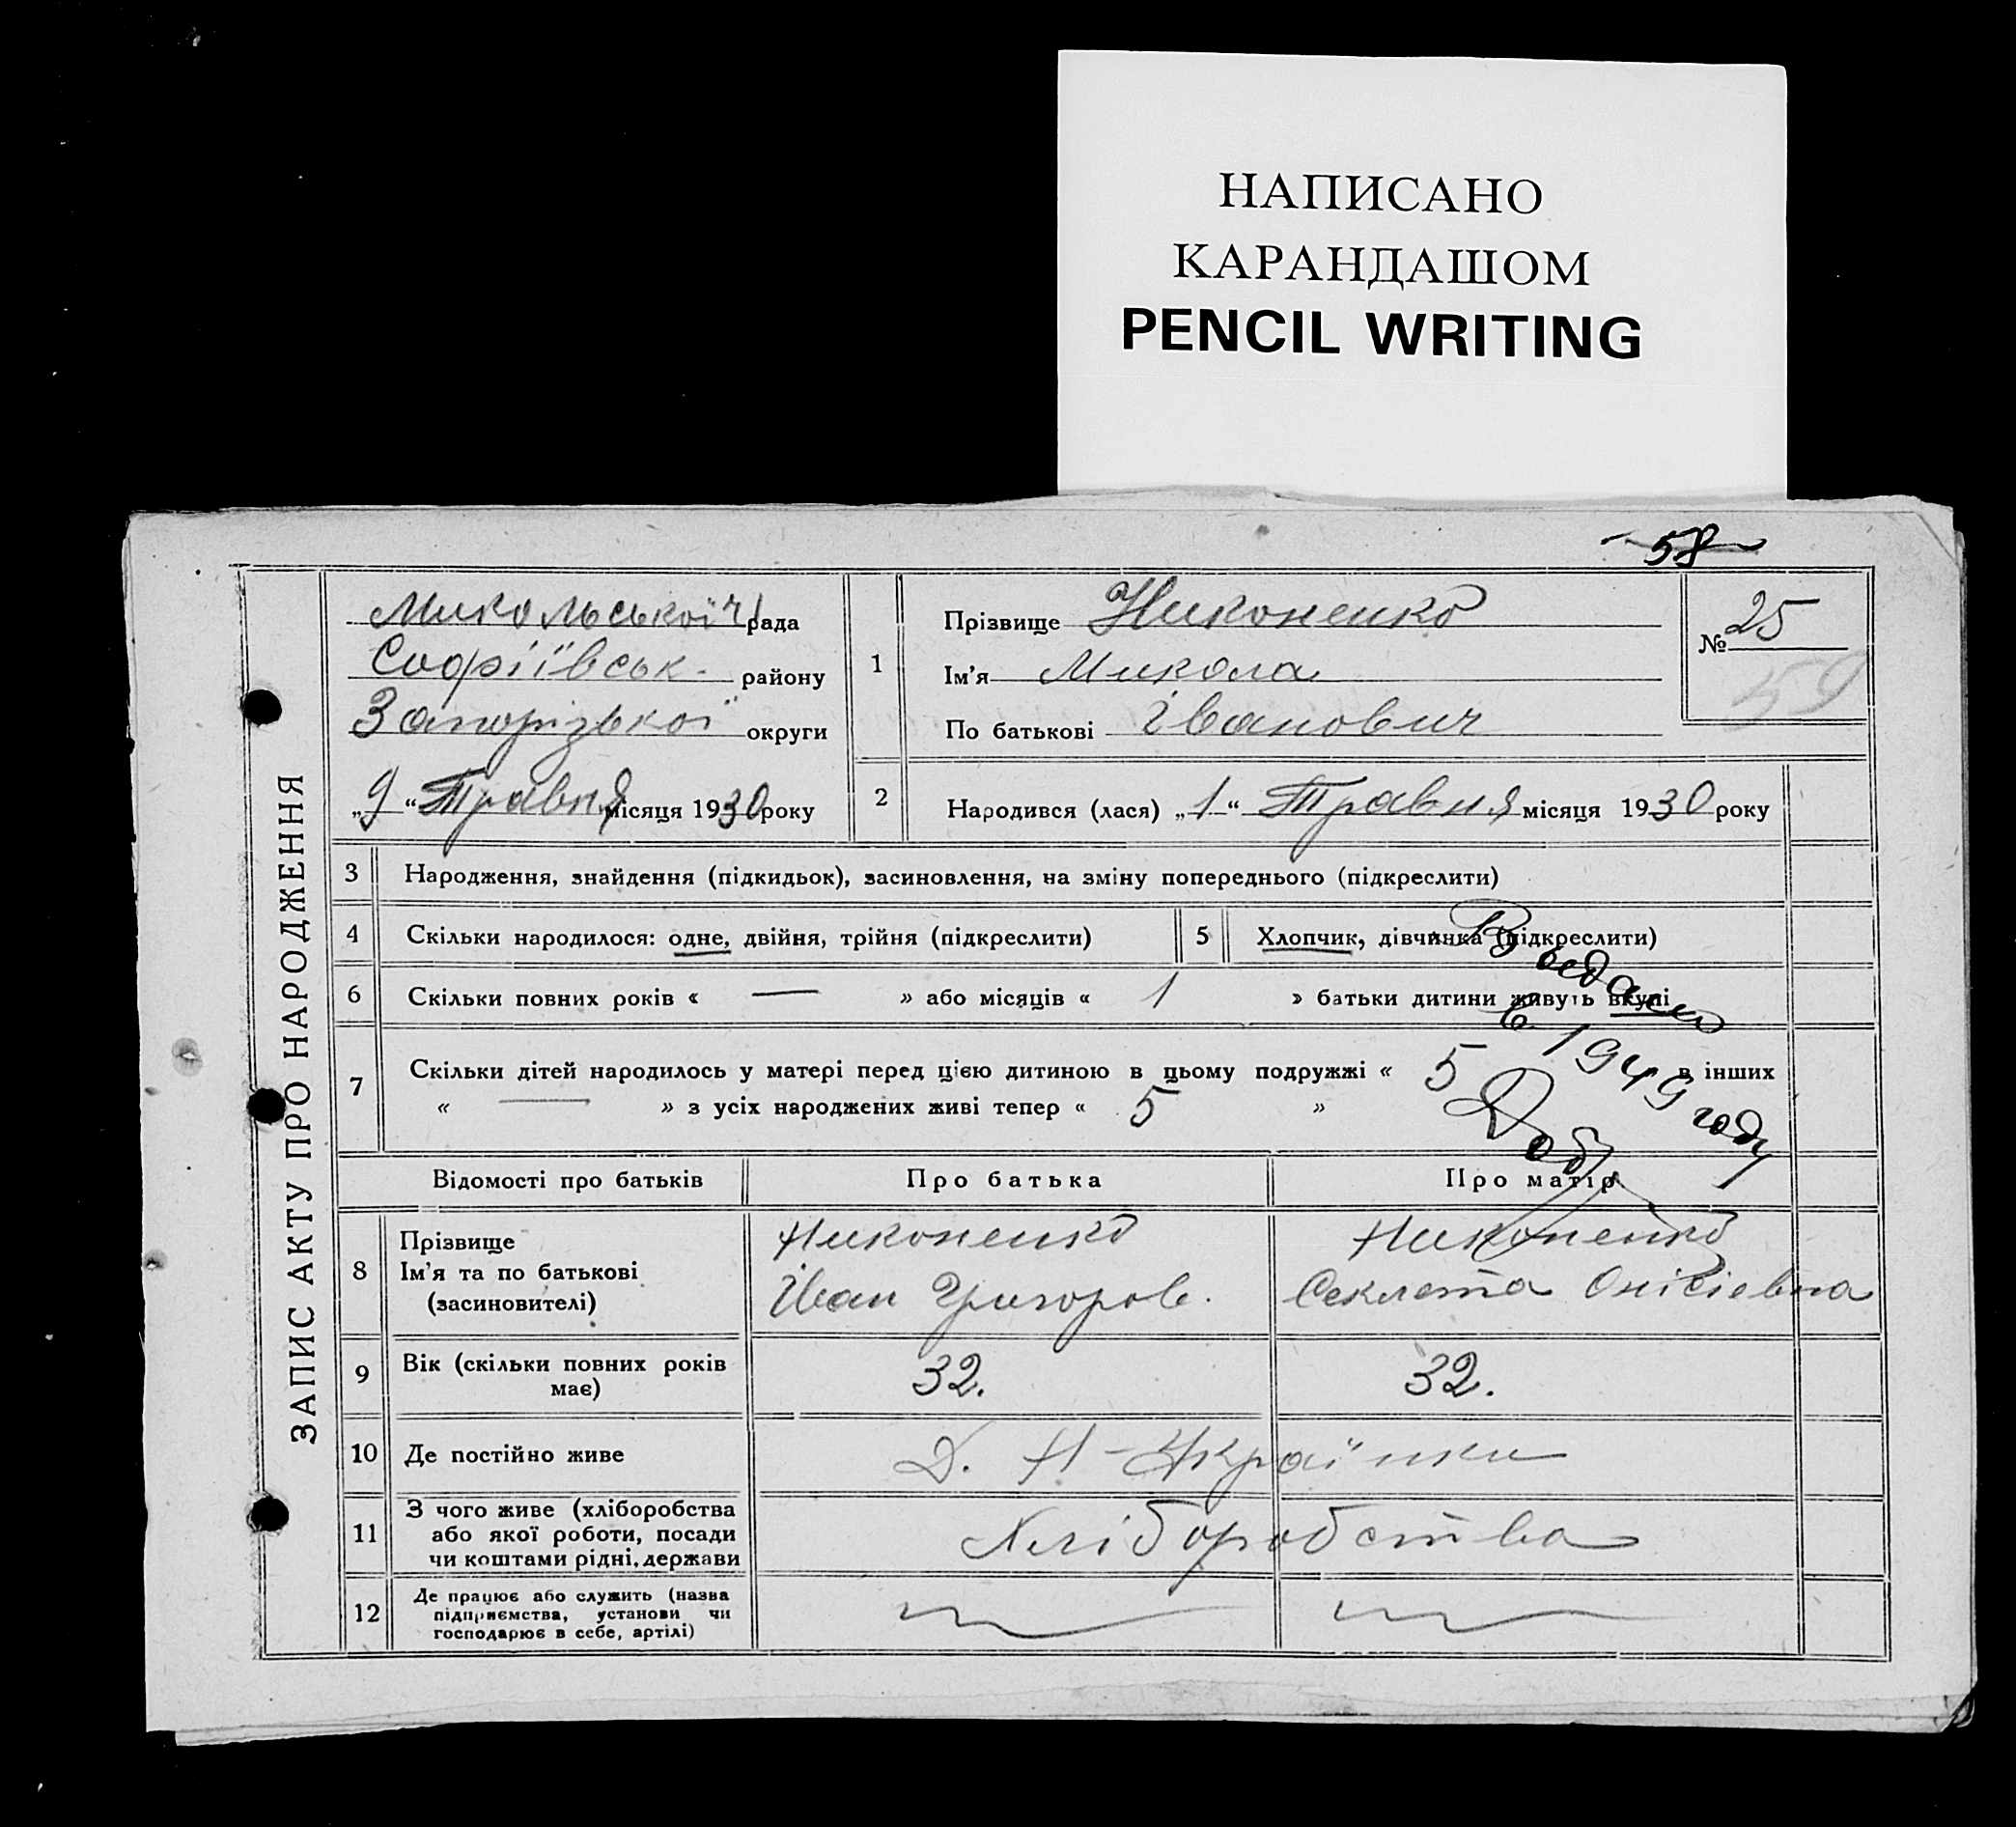 НАПИСАНО
КАРАНДАШОМ
PENCIL WRITING
58
ЗАПИС АКТУ ПРО НАРОДЖЕННЯ
рада
Софіївськ. району
Запорізької округи
„9“ Травня місяця 1930 року
1
Прізвище Никоненко
Ім'я Микола
По батькові Іванович
№ 25
59
2
Народився (лася) „1“ Травня місяця 1930 року
3 Народження, знайдення (підкидьок), засиновлення, на зміну попереднього (підкреслити)
4 Скільки народилося: одне, двійня, трійня (підкреслити)
5 Хлопчик, дівчинка (підкреслити)
6 Скільки повних років « — » або місяців « 1 » батьки дитини живуть вкупі
7 Скільки дітей народилось у матері перед цією дитиною в цьому подружжі « 5 в інших
« — » з усіх народжених живі тепер « 5 »
в 1949 году
Відомості про батьків Про батька Про матір
8 Прізвище
Ім'я та по батькові
(засиновителі)
Никоненко
Іван Григоров.
Никоненко
Секлета Онісіевна
9 Вік (скільки повних років
має)
32. 32.
10 Де постійно живе Д. Н-Українки
11 З чого живе (хліборобства
або якої роботи, посади
чи коштами рідні, держави
Хліборобства
12 Де працює або служить (назва
підприємства, установи чи
господарює в себе, артілі)